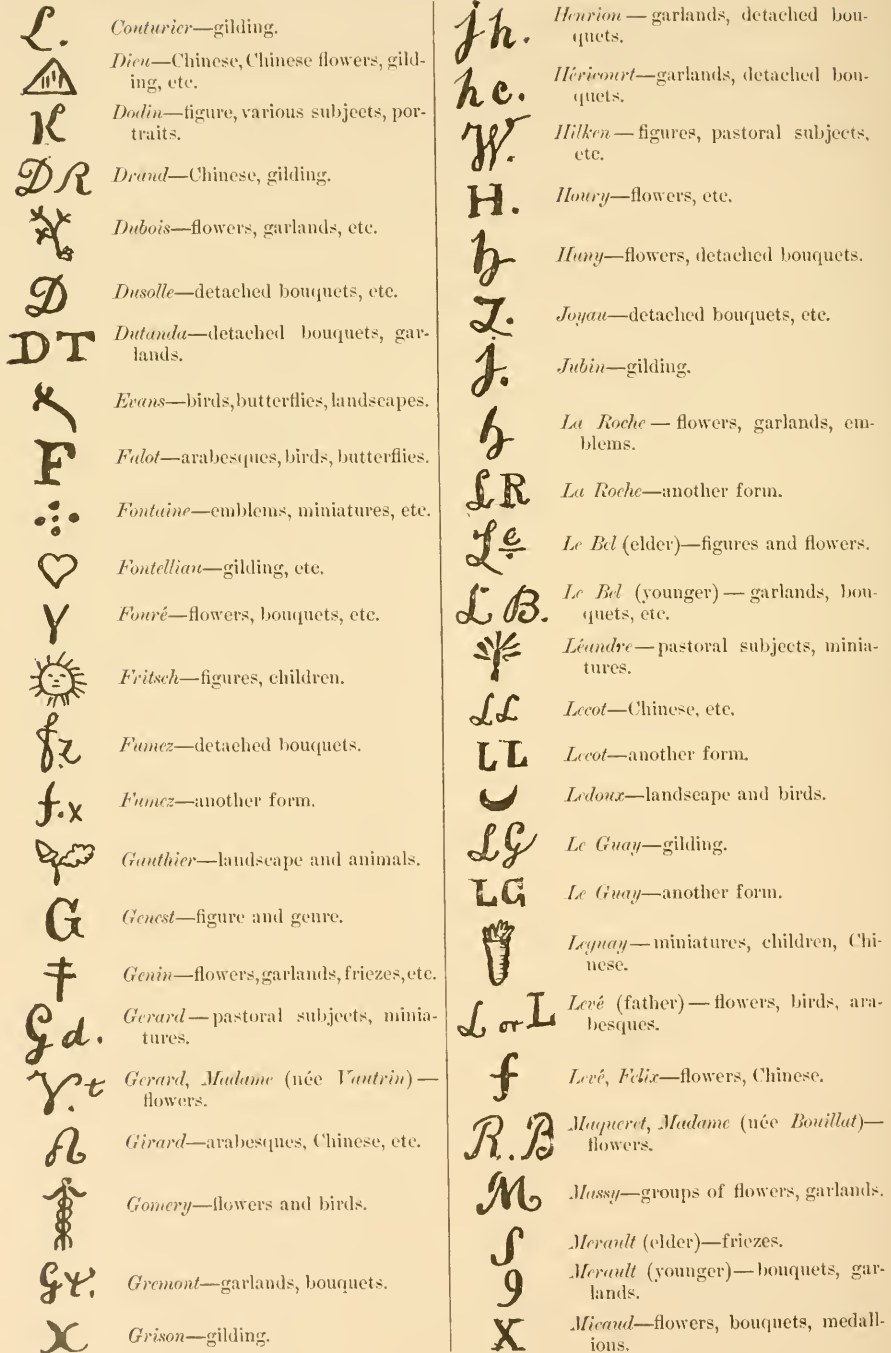 L. Couturier—gilding.
Dieu—Chinese, Chinese flowers, gild-
ing, etc.
K Dodin—figure, various subjects, por-
traits.
DR Drand—Chinese, gilding.
Dubois—flowers, garlands, etc.
D Dusolle—detached bouquets, etc.
DT Dutanda—detached bouquets, gar-
lands.
Evans—birds, butterflies, landscapes.
F Falot—arabesques, birds, butterflies.
Fontaine—emblems, miniatures, etc.
Fontellian—gilding, etc.
Y Fouré—flowers, bouquets, etc.
Fritsch—figures, children.
fz Fumez—detached bouquets.
f.x Fumez—another form.
Gauthier—landscape and animals.
G Genest—figure and genre.
Genin—flowers, garlands, friezes, etc.
Gd. Gerard—pastoral subjects, minia-
tures.
V.t Gerard, Madame (née Vautrin)—
flowers.
Girard—arabesques, Chinese, etc.
Gomery—flowers and birds.
Gt. Gremont—garlands, bouquets.
X Grison—gilding.
jh. Henrion—garlands, detached bou-
quets.
hc. Héricourt—garlands, detached bou-
quets.
W. Hilken—figures, pastoral subjects,
etc.
H. Houry—flowers, etc.
h Huny—flowers, detached bouquets.
Z. Joyau—detached bouquets, etc.
j. Jubin—gilding.
h La Roche—flowers, garlands, em-
blems.
LR La Roche—another form.
Le Le Bel (elder)—figures and flowers.
LB. Le Bel (younger)—garlands, bou-
quets, etc.
Léandre—pastoral subjects, minia-
tures.
LL Lecot—Chinese, etc.
LL Lecot—another form.
Ledoux—landscape and birds.
LG Le Guay—gilding.
LG Le Guay—another form.
Leguay—miniatures, children, Chi-
nese.
L or L Levé (father)—flowers, birds, ara-
besques.
f Levé, Felix—flowers, Chinese.
R.B Maqueret, Madame (née Bouillat)—
flowers.
M Massy—groups of flowers, garlands.
S Merault (elder)—friezes.
9 Merault (younger)—bouquets, gar-
lands.
X Micaud—flowers, bouquets, medall-
ions.